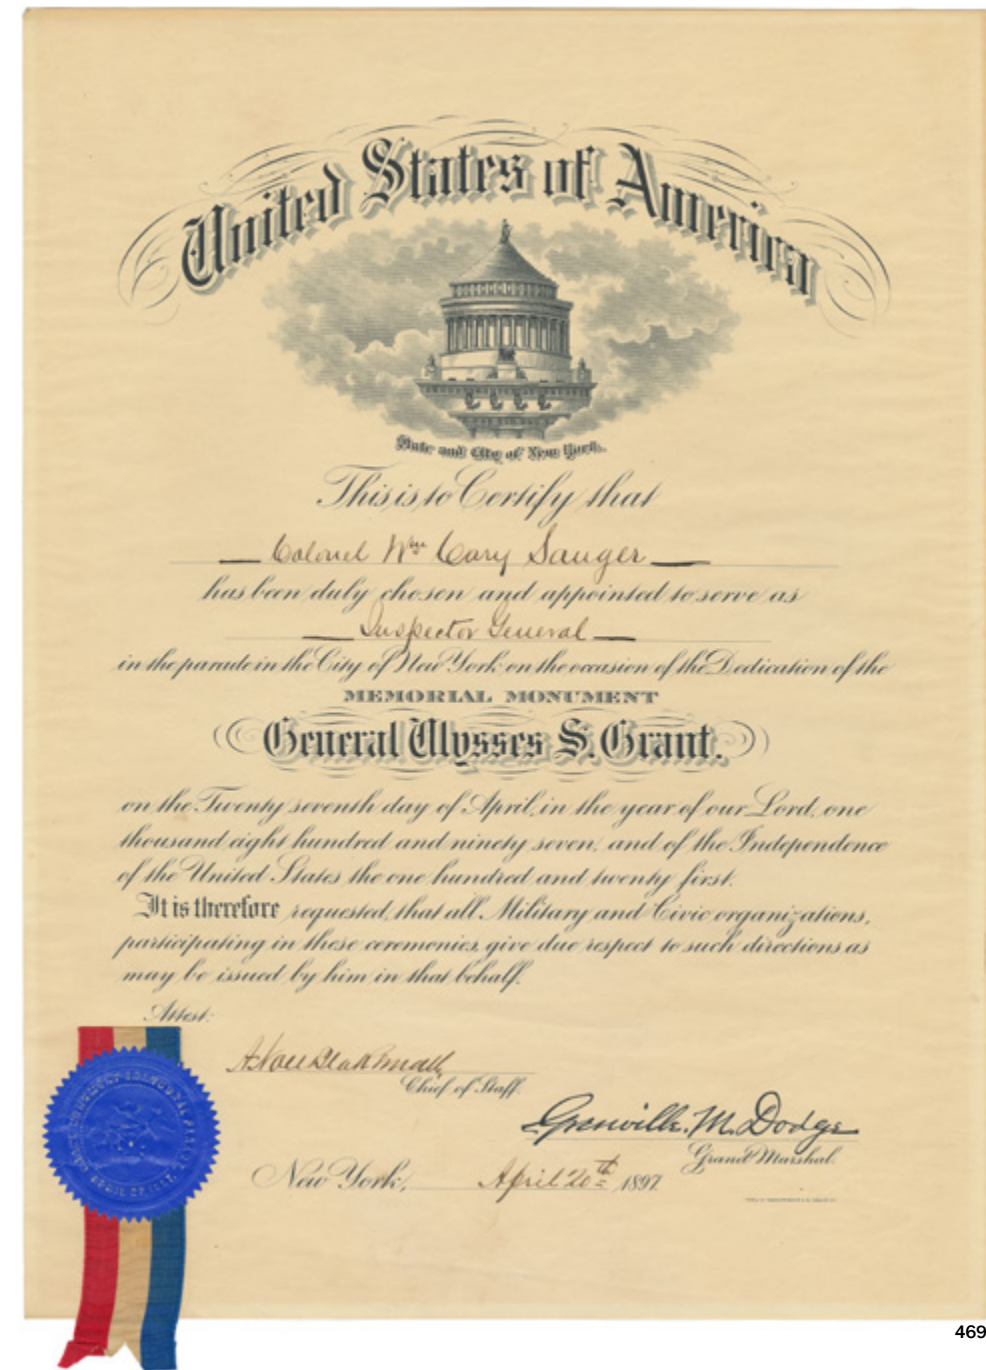 United States of America
State and City of New York.
This is to Certify that
Colonel Wm Cary Sanger
has been duly chosen and appointed to serve as
Inspector General
in the parade in the City of New York on the occasion of the Dedication of the
MEMORIAL MONUMENT
General Ulysses S. Grant.
on the Twenty seventh day of April, in the year of our Lord, one
thousand eight hundred and ninety seven, and of the Independence
of the United States the one hundred and twenty first.
It is therefore requested, that all Military and Civic organizations,
participating in these ceremonies, give due respect to such directions as
may be issued by him in that behalf.
Attest:
Chief of Staff.
Grenville M. Dodge
Grand Marshal.
New York, April 20th 1897
APRIL 27, 1897.
469